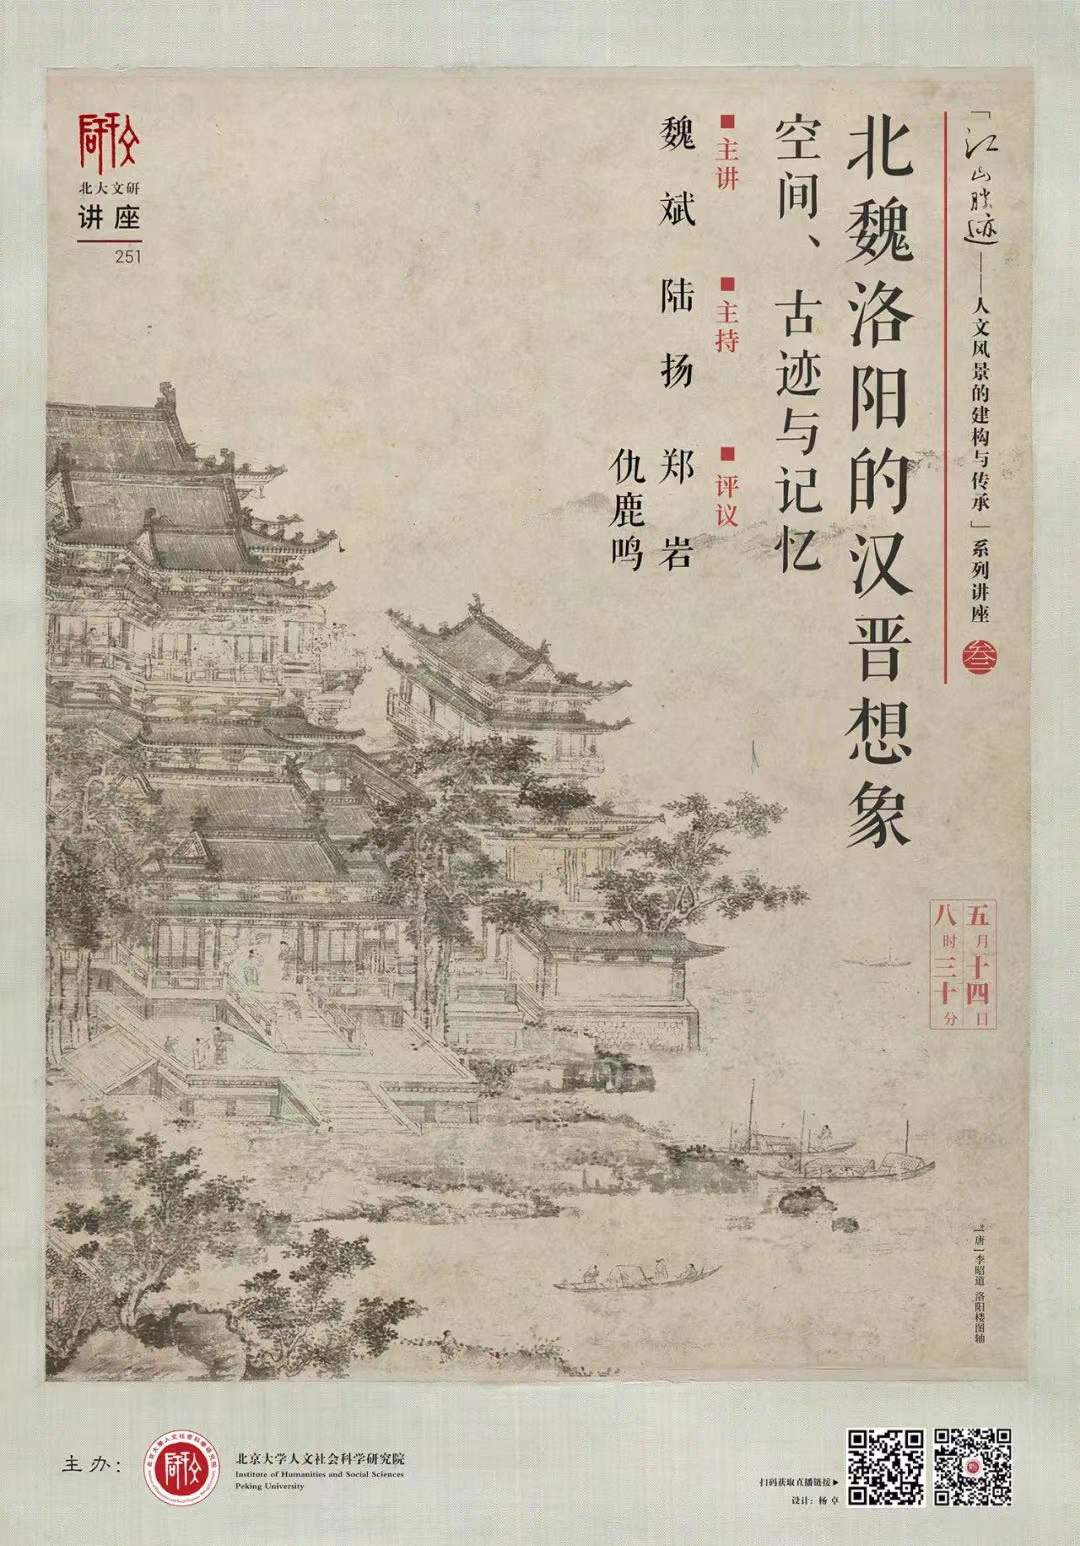 「江山胜迹——人文风景的建构与传承」系列讲座 叁
北魏洛阳的汉晋想象
空间、古迹与记忆
主讲
魏斌
主持
陆扬
评议
郑岩
仇鹿鸣
北大文研
讲座
251
五月十四日
八时三十分
[唐]李昭道 洛阳楼图轴
主办：
北京大学人文社会科学研究院
Institute of Humanities and Social Sciences
Peking University
扫码获取直播链接▶
设计：杨卓